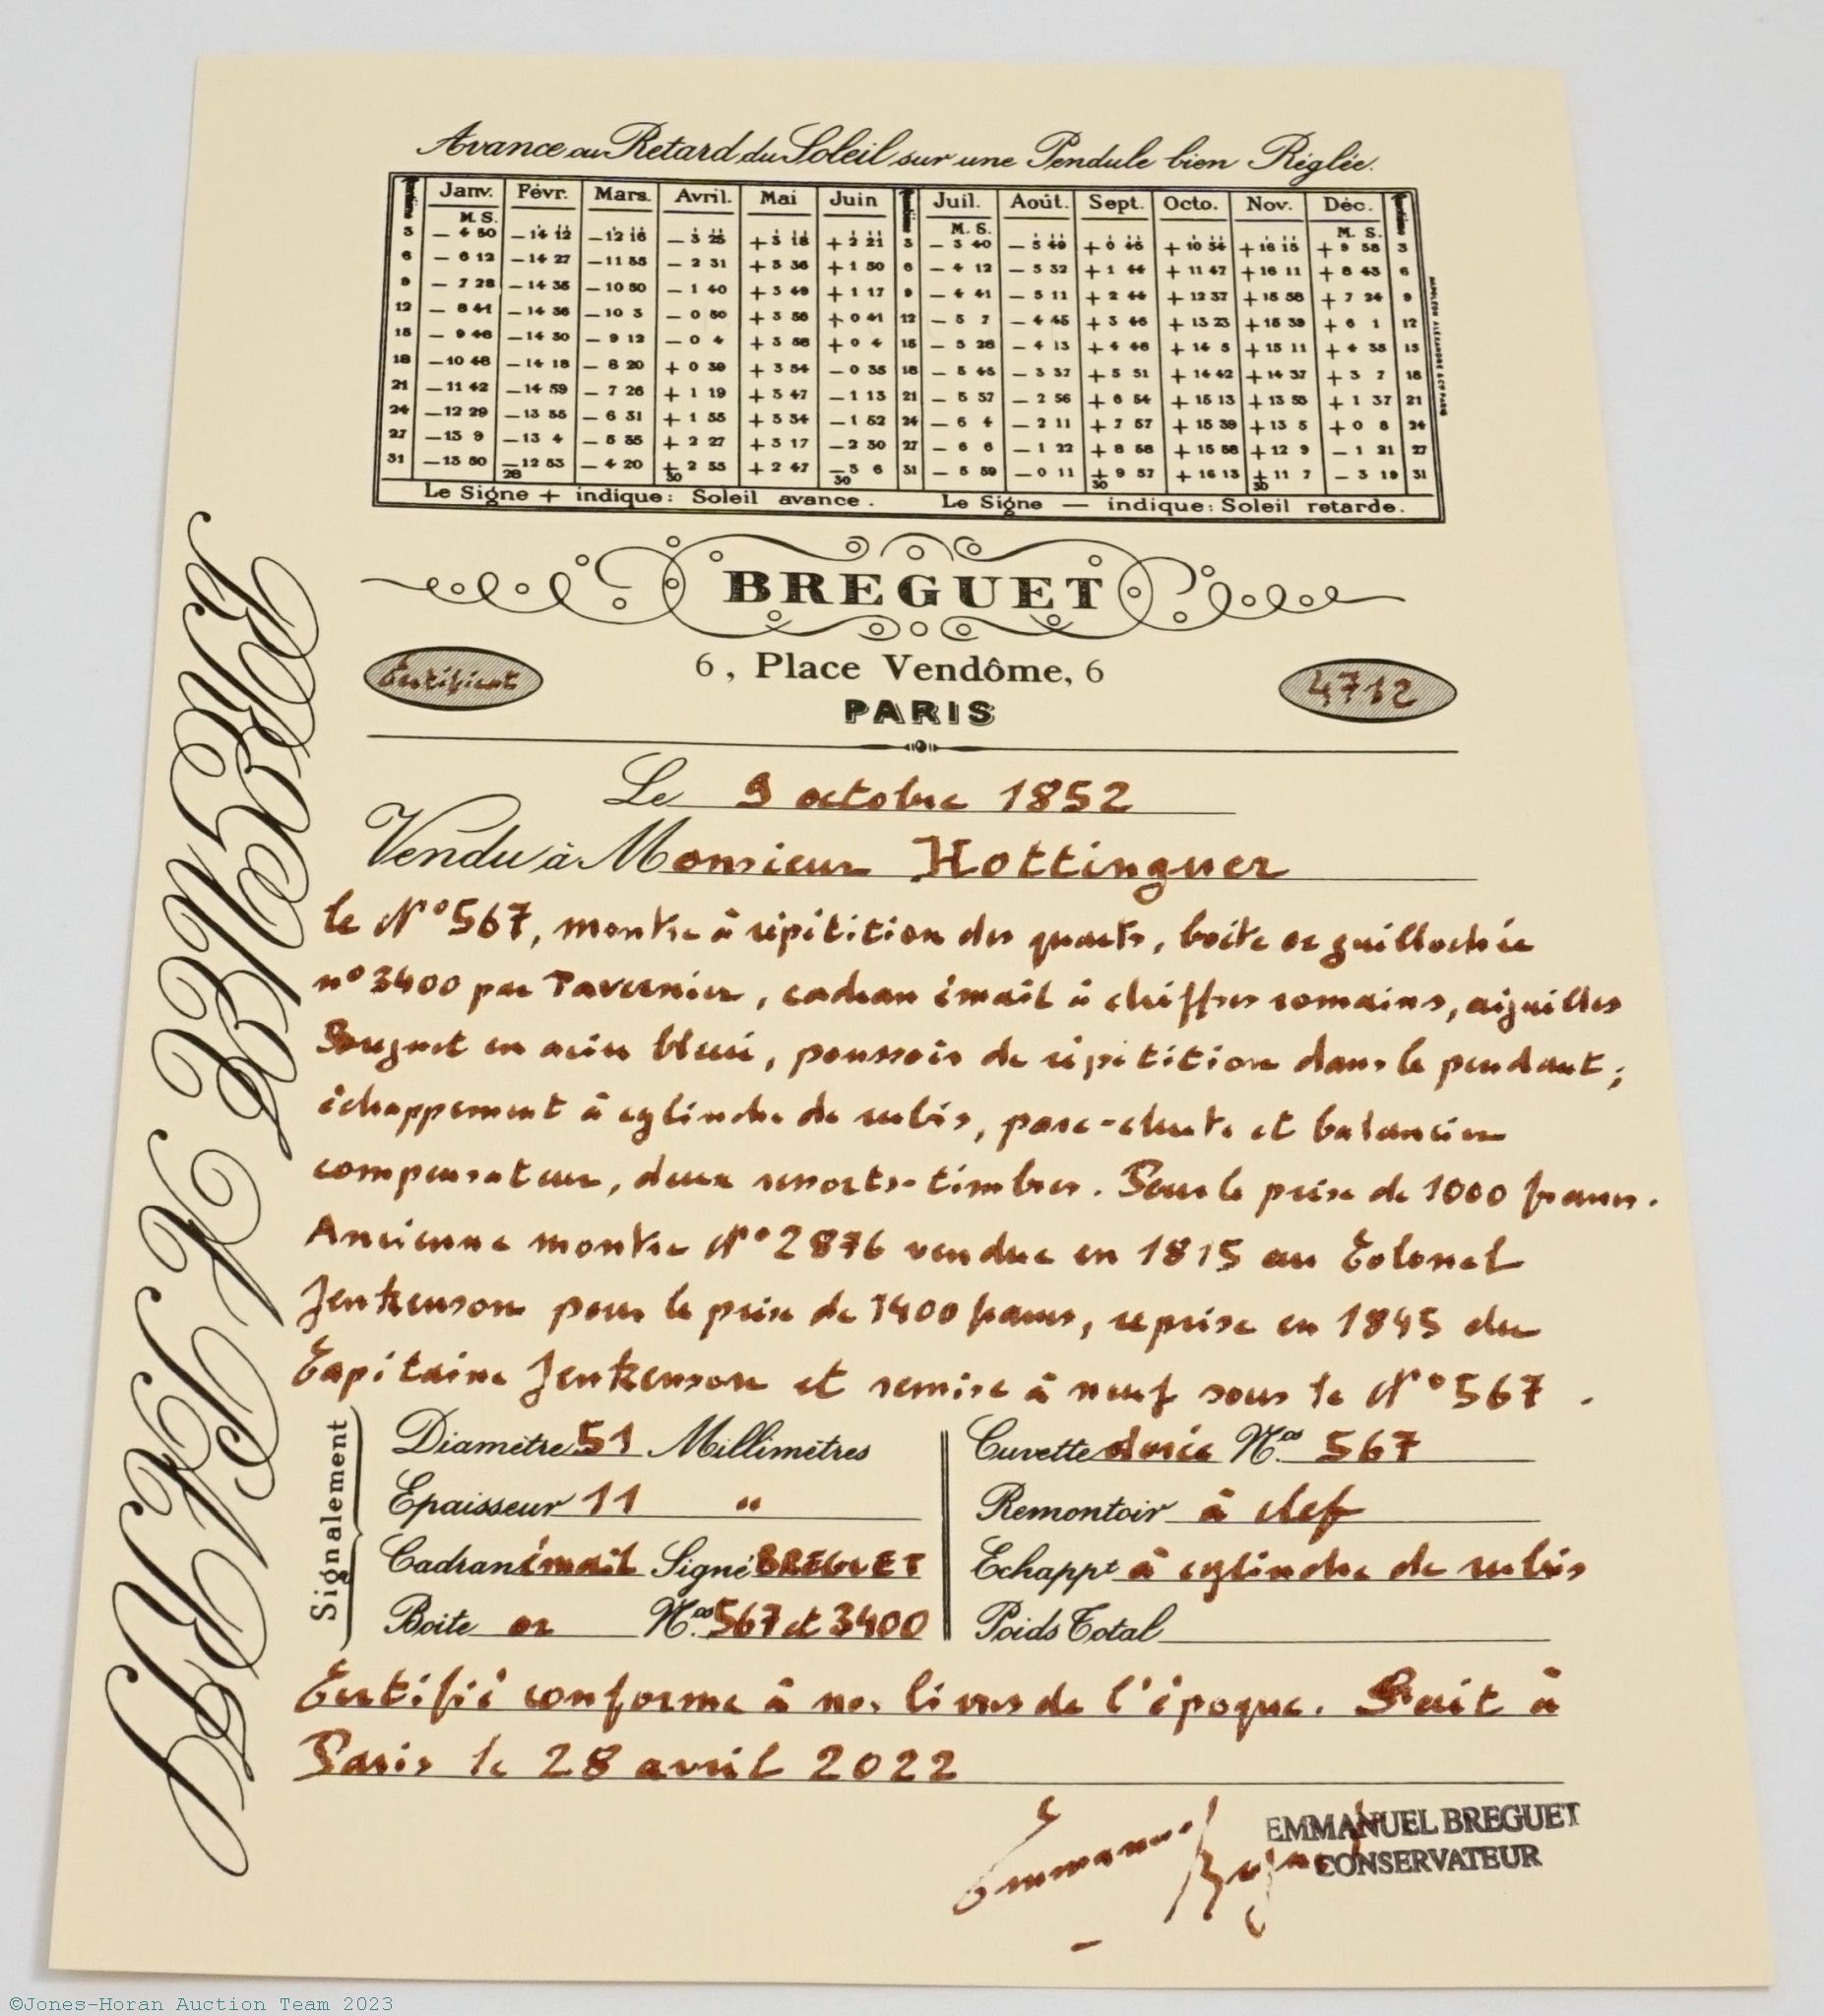 Avance ou Retard du Soleil sur une Pendule bien Réglée.
Janv. Févr. Mars. Avril. Mai Juin Juil. Août. Sept. Octo. Nov. Déc.
M. S. M. S. M. S.
3 − 4 50 −14 12 −12 16 − 3 25 +3 18 +2 21 3 − 3 40 − 5 49 +0 45 +10 54 +16 15 +9 58 3
6 − 6 12 −14 27 −11 35 − 2 31 +3 36 +1 50 6 − 4 12 − 5 32 +1 44 +11 47 +16 11 +8 43 6
9 − 7 28 −14 35 −10 50 − 1 40 +3 49 +1 17 9 − 4 41 − 5 11 +2 44 +12 37 +15 58 +7 24 9
12 − 8 41 −14 36 −10 3 − 0 50 +3 56 +0 41 12 − 5 7 − 4 45 +3 46 +13 23 +15 39 +6 1 12
15 − 9 46 −14 30 − 9 12 − 0 4 +3 58 +0 4 15 − 5 28 − 4 13 +4 48 +14 5 +15 11 +4 35 15
18 −10 46 −14 18 − 8 20 +0 39 +3 54 −0 35 18 − 5 45 − 3 37 +5 51 +14 42 +14 37 +3 7 18
21 −11 42 −14 59 − 7 26 +1 19 +3 47 −1 13 21 − 5 57 − 2 56 +6 54 +15 13 +13 55 +1 37 21
24 −12 29 −13 35 − 6 31 +1 55 +3 34 −1 52 24 − 6 4 − 2 11 +7 57 +15 39 +13 5 +0 8 24
27 −13 9 −13 4 − 5 35 +2 27 +3 17 −2 30 27 − 6 6 − 1 22 +8 58 +15 58 +12 9 −1 21 27
31 −13 50 −12 53 − 4 20 +2 55 +2 47 −3 6 31 − 5 59 −0 11 +9 57 +16 13 +11 7 −3 19 31
28 30 30 30 30
Le Signe + indique: Soleil avance. Le Signe — indique: Soleil retarde.
BREGUET
6, Place Vendôme, 6
PARIS
Certificat
4712
BREGUET A PARIS
Le 9 octobre 1852
Vendu à Monsieur Hottinguer
le N° 567, montre à répétition des quarts, boîte or guillochée
n° 3400 par Tavernier, cadran émail à chiffres romains, aiguilles
Breguet en acier bleui, poussoir de répétition dans le pendant;
échappement à cylindre de rubis, pare-chute et balancier
compensateur, deux ressorts-timbres. Pour le prix de 1000 francs.
Ancienne montre N° 2876 vendue en 1815 au Colonel
Jenkenson pour le prix de 1400 francs, reprise en 1845 du
Capitaine Jenkenson et remise à neuf sous le N° 567.
Signalement
Diamètre 51 Millimètres
Epaisseur 11 "
Cadran émail Signé BREGUET
Boite or Nos. 567 et 3400
Cuvette dorée Nos. 567
Remontoir à clef
Echappt à cylindre de rubis
Poids Total
Certifié conforme à nos livres de l'époque. Fait à
Paris le 28 avril 2022
Emmanuel Breguet
EMMANUEL BREGUET
CONSERVATEUR
©Jones-Horan Auction Team 2023